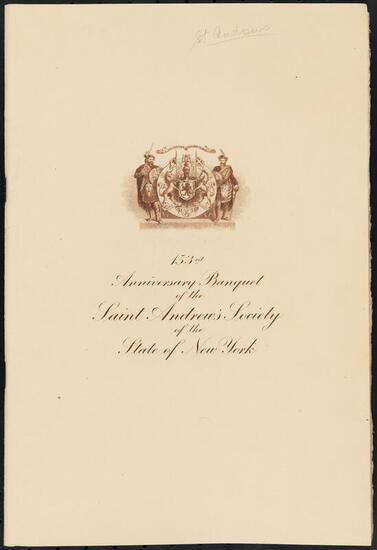 St Andrews
153rd
Anniversary Banquet
of the
Saint Andrew's Society
of the
State of New York